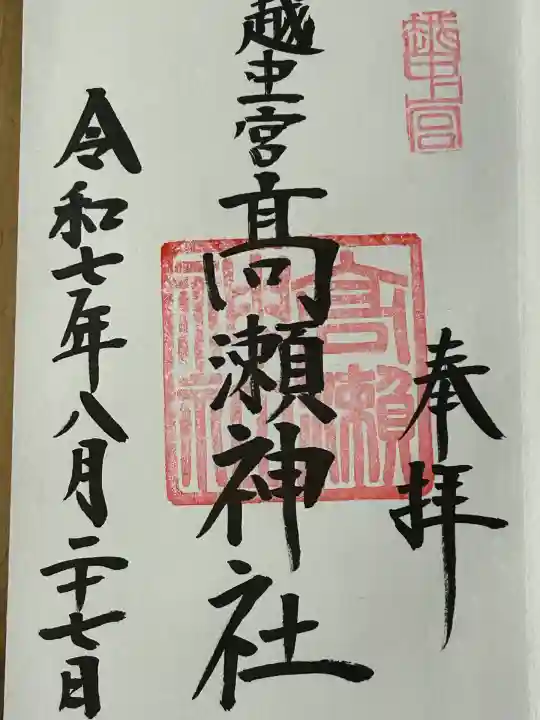 越中宮
奉拝
越中一宮
高瀬神社
高瀬神社
令和七年八月二十七日